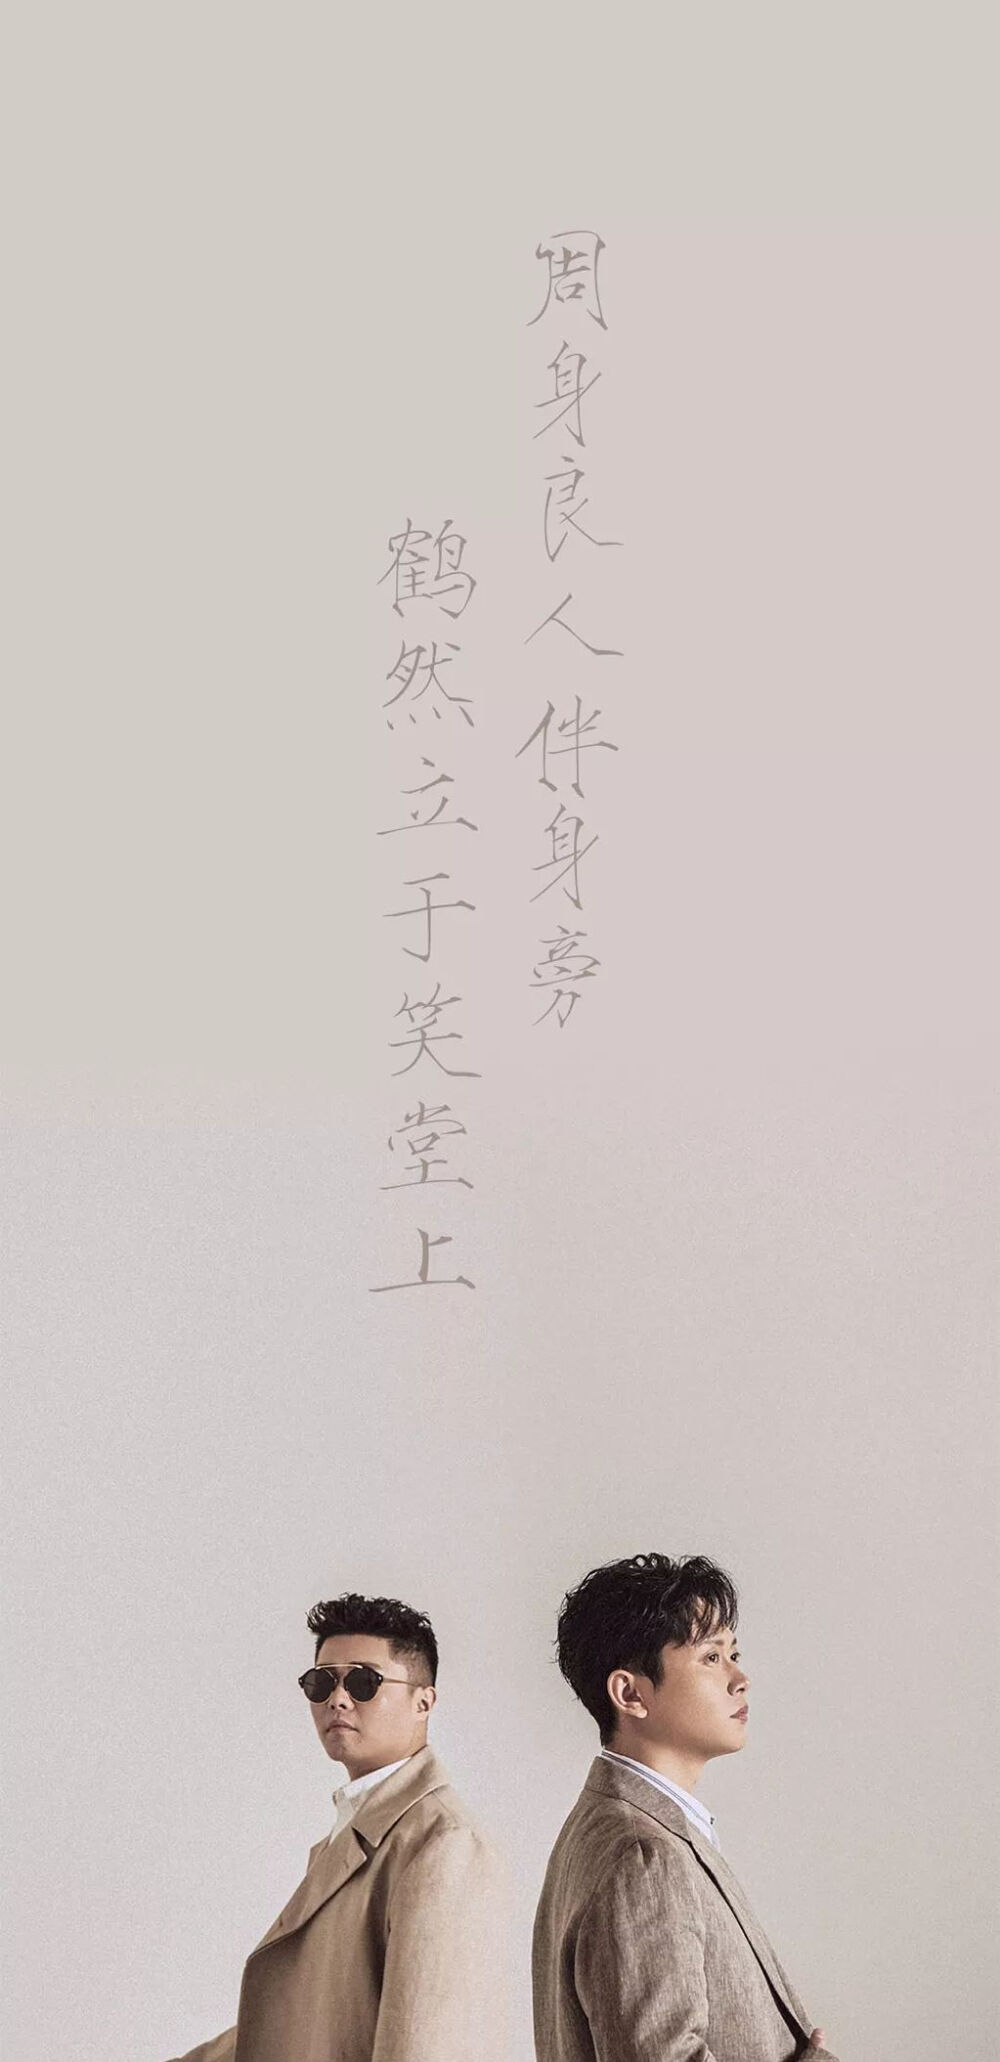 周身良人伴身旁
鹤然立于笑堂上